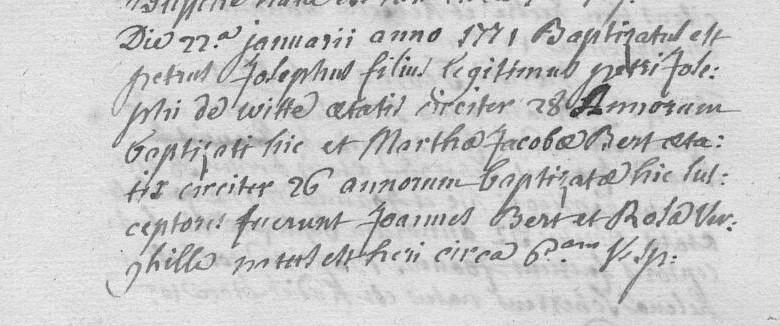 Die 22.a januarii anno 1771 Baptizatus est
petrus Josephus filius legitimus petri Jose:
phi de witte ætatis circiter 28 Annorum
baptizati hic et Marthæ Jacobæ Bert æta:
tis circiter 26 annorum baptizatæ hic sus:
ceptores fuerunt Joannes Bert et Rosa Ver:
ghille natus est heri circa 6.am vesp: